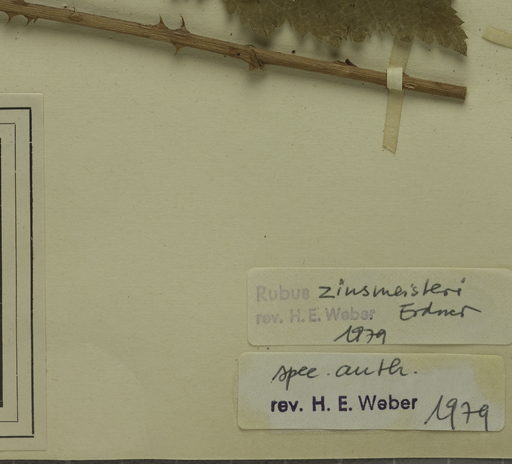 Rubus zinsmeisteri
rev. H. E. Weber Erdner
1979
spec. auth.
rev. H. E. Weber 1979